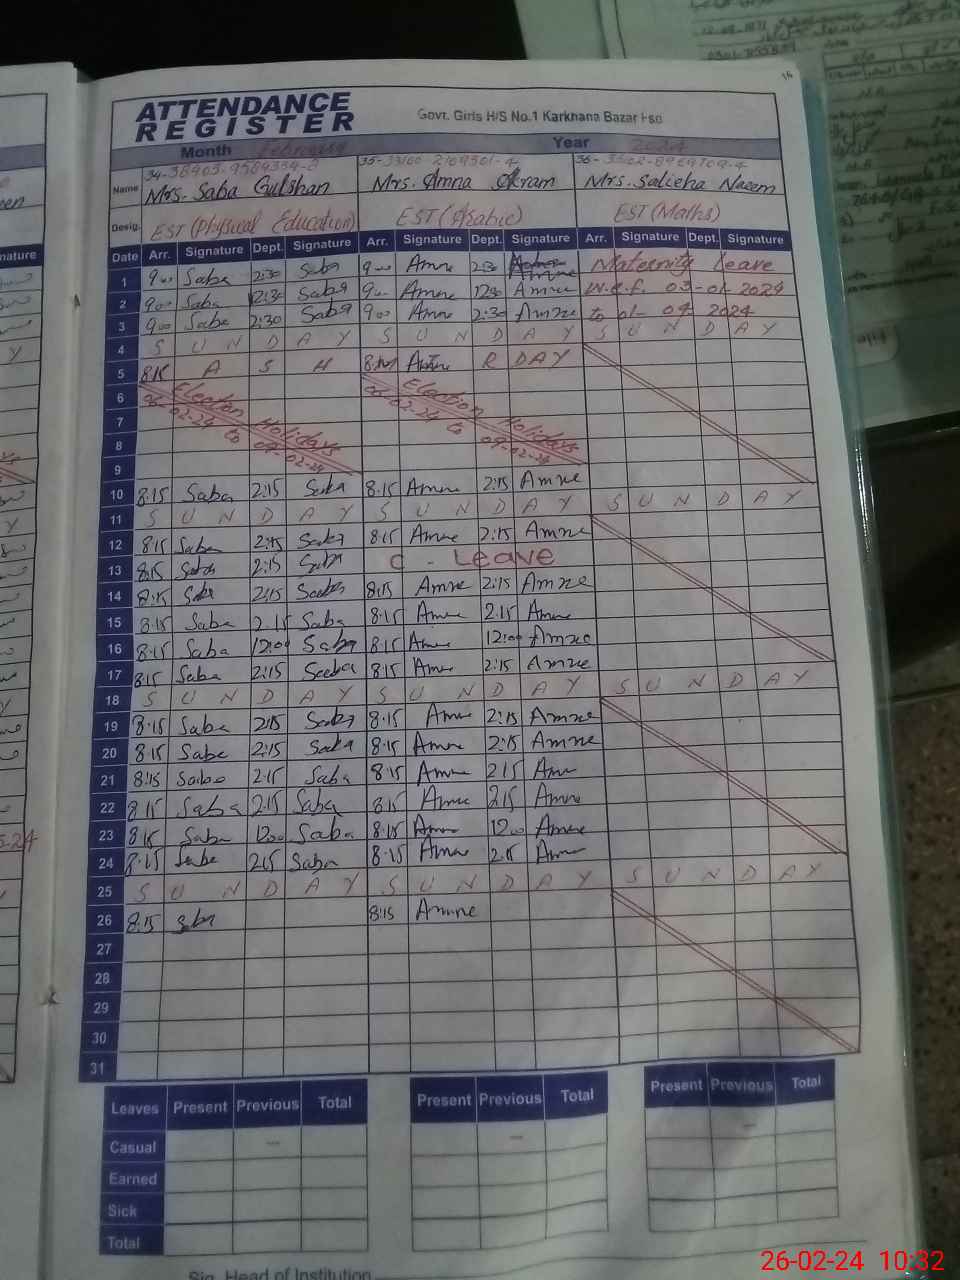 16
ATTENDANCE
REGISTER
Govt. Girls H/S No.1 Karkhana Bazar Fsd
Month February Year 2024
Name Mrs. Saba Gulshan Mrs. Amna Akram Mrs. Salieha Naeem
Desig. EST (Physical Education) EST (Arabic) EST (Maths)
Date Arr. Signature Dept. Signature Arr. Signature Dept. Signature Arr. Signature Dept. Signature
1 9 00 Saba 2:30 Saba 9 00 Amne 2:30 Amne Maternity Leave
2 9 00 Saba 12:30 Saba 9 00 Amne 12:30 Amne w.e.f. 03-01-2024
3 9 00 Saba 2:30 Saba 9 00 Amne 2:30 Amne to 01-04-2024
4 S U N D A Y S U N D A Y S U N D A Y
5 8:15 A S H 8:15 Amne R DAY
6 Election Election
7 06-02-24 to Holidays 06-02-24 to Holidays
8 09-02-24 09-02-24
9
10 8:15 Saba 2:15 Saba 8:15 Amne 2:15 Amne
11 S U N D A Y S U N D A Y S U N D A Y
12 8:15 Saba 2:15 Saba 8:15 Amne 2:15 Amne
13 8:15 Saba 2:15 Saba C - Leave
14 8:15 Saba 2:15 Saba 8:15 Amne 2:15 Amne
15 8:15 Saba 2.15 Saba 8:15 Amne 2.15 Amne
16 8:15 Saba 12:00 Saba 8:15 Amne 12:00 Amne
17 8:15 Saba 2:15 Saba 8:15 Amne 2:15 Amne
18 S U N D A Y S U N D A Y S U N D A Y
19 8:15 Saba 2:15 Saba 8:15 Amne 2:15 Amne
20 8:15 Saba 2:15 Saba 8:15 Amne 2:15 Amne
21 8:15 Saba 2:15 Saba 8:15 Amne 2:15 Amne
22 8:15 Saba 2:15 Saba 8:15 Amne 2:15 Amne
23 8:15 Saba 12:00 Saba 8:15 Amne 12:00 Amne
24 8:15 Saba 2:15 Saba 8:15 Amne 2:15 Amne
25 S U N D A Y S U N D A Y S U N D A Y
26 8:15 Saba 8:15 Amne
27
28
29
30
31
Leaves Present Previous Total Present Previous Total Present Previous Total
Casual – – –
Earned
Sick
Total
Sig. Head of Institution
26-02-24 10:32